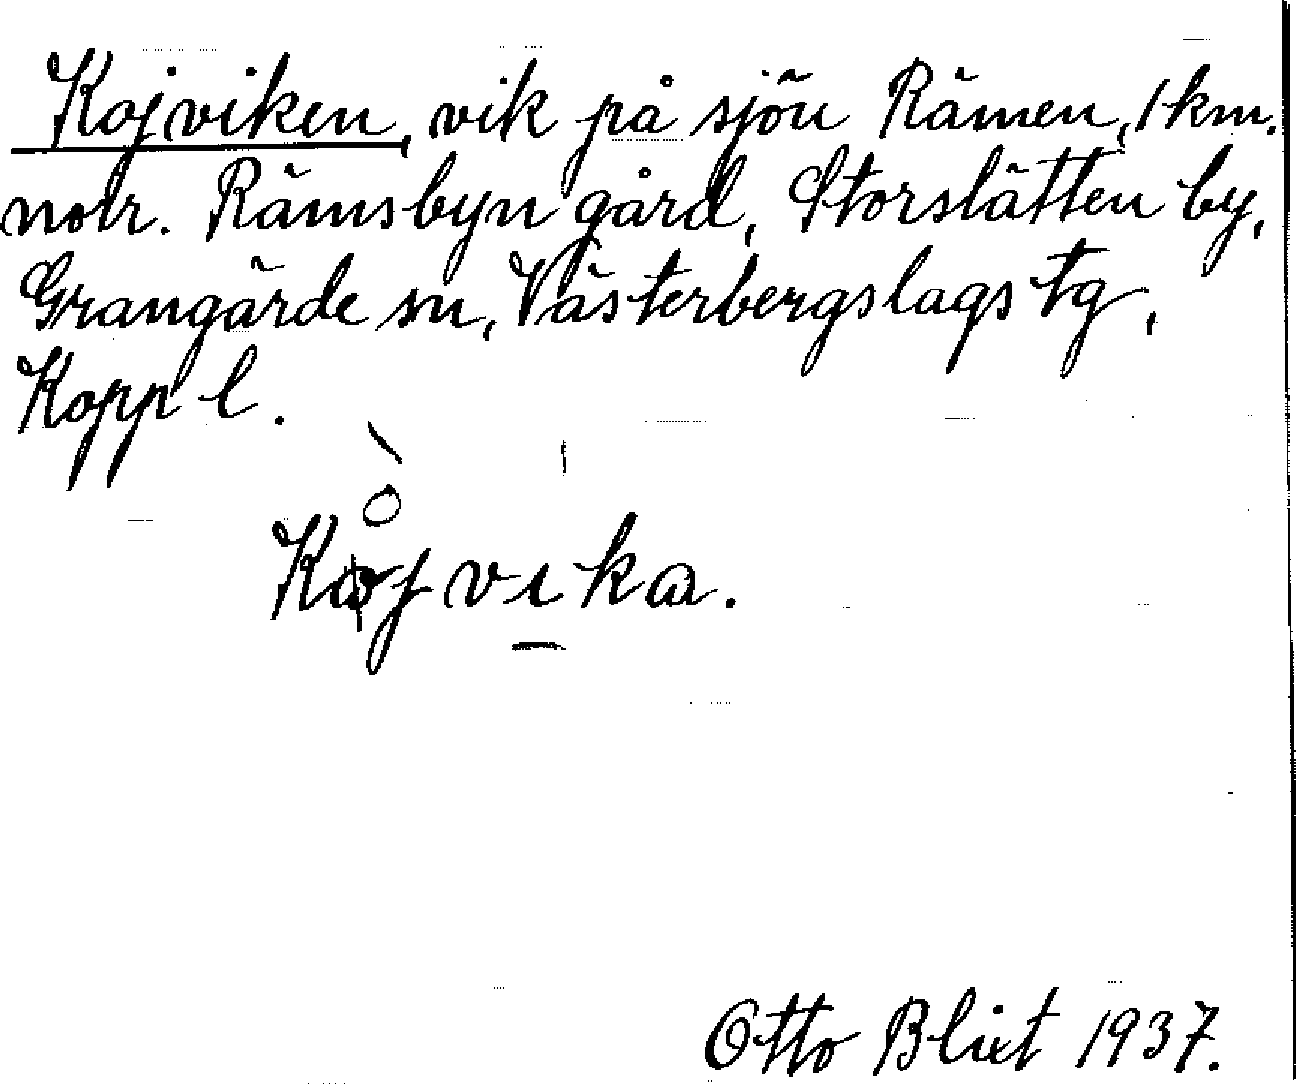 Kojviken, vik på sjön Rämen, 1 km.
nolr. Rämsbyn gård, Storslätten by,
Grangärde sn, Västerbergslags tg,
Kopp l.
Kojvika.
Otto Blixt 1937.